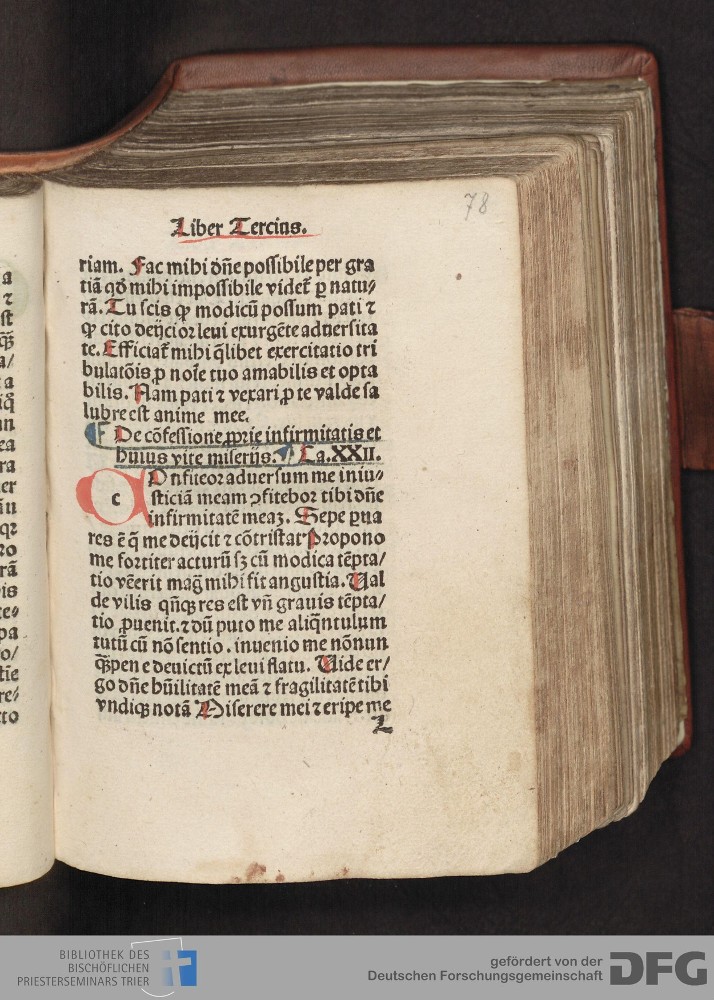 78
Liber Tercius.
riam. Fac mihi dñe possibile per gra
tiã qđ mihi impossibile videt᷑ ꝑ natu⸗
rã. Tu scis ꝙ modicũ possum pati ⁊
ꝙ cito deijcior leui exurgẽte aduersita
te. Efficiat᷑ mihi q̃libet exercitatio tri
bulatõis ꝓ noĩe tuo amabilis et opta
bilis. Nam pati ⁊ vexari ꝓ te valde sa
lubre est anime mee.
De cõfessione ꝓprie infirmitatis et
huius vite miserijs. Ca. XXII.
c Onfiteor aduersum me iniu⸗
sticiã meam ꝯfitebor tibi dñe
infirmitatẽ meaꝫ. Sepe ꝑua
res ẽ q̃ me deijcit ⁊ cõtristat Propono
me fortiter acturũ sꝫ cũ modica tẽpta/
tio vẽerit mag̃ mihi fit angustia. Ual
de vilis qñqꝫ res est vñ grauis tẽpta/
tio ꝓuenit. ⁊ dũ puto me aliq̃ntulum
tutũ cũ nõ sentio. inuenio me nõnun
q̃ꝫ pene deuictũ ex leui flatu. Uide er/
go dñe hũilitatẽ meã ⁊ fragilitatẽ tibi
vndiqꝫ notã Miserere mei ⁊ eripe me
L
BIBLIOTHEK DES
BISCHÖFLICHEN
PRIESTERSEMINARS TRIER
gefördert von der
Deutschen Forschungsgemeinschaft
DFG